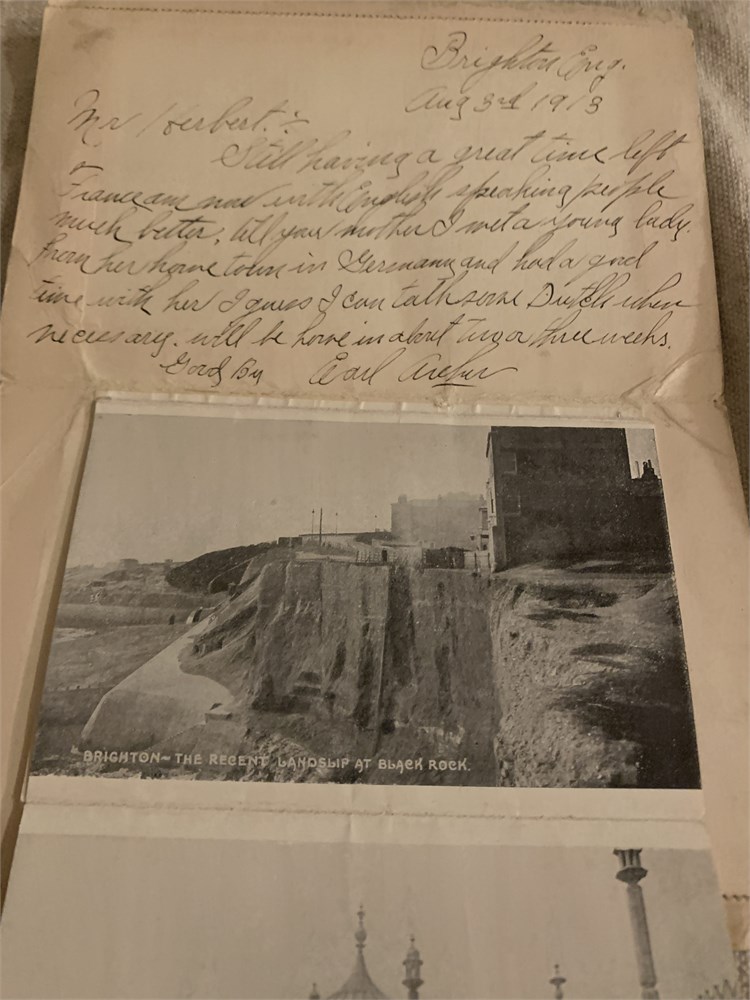 Brighton Eng.
Aug 3rd 1913
Mr Herbert:-
Still having a great time left
France am now with English speaking people
much better, tell your mother I met a young lady.
from her home town in Germany and had a good
time with her I guess I can talk some Dutch when
necessary. will be home in about two or three weeks.
Good By Earl Archer
BRIGHTON~ THE RECENT LANDSLIP AT BLACK ROCK.